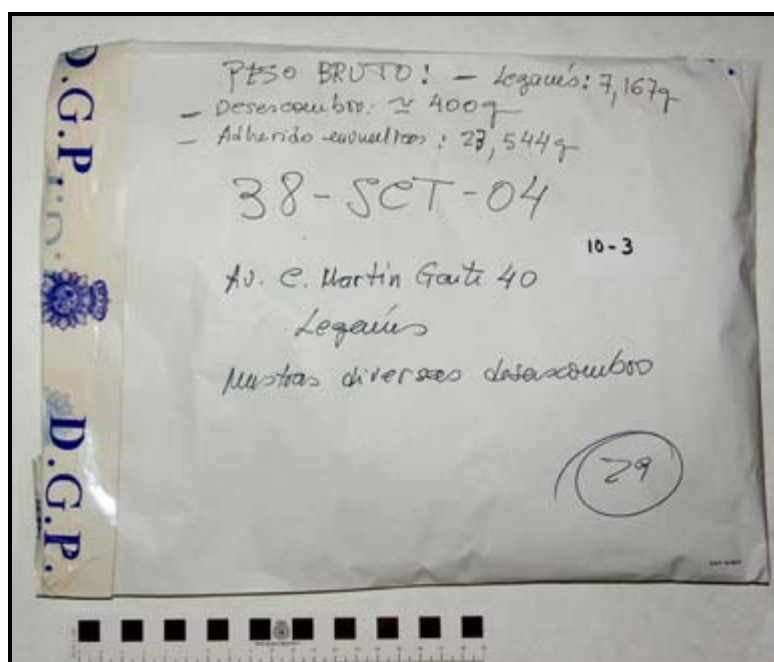 PESO BRUTO! - Leganés: 7,167g
- Desescombro: ≃ 400g
- Adherido envueltros : 23,544g
38-SCT-04
10-3
Av. C. Martín Gaite 40
Leganés
Muestras diversas desescombro
29
D.G.P.
D.G.P.